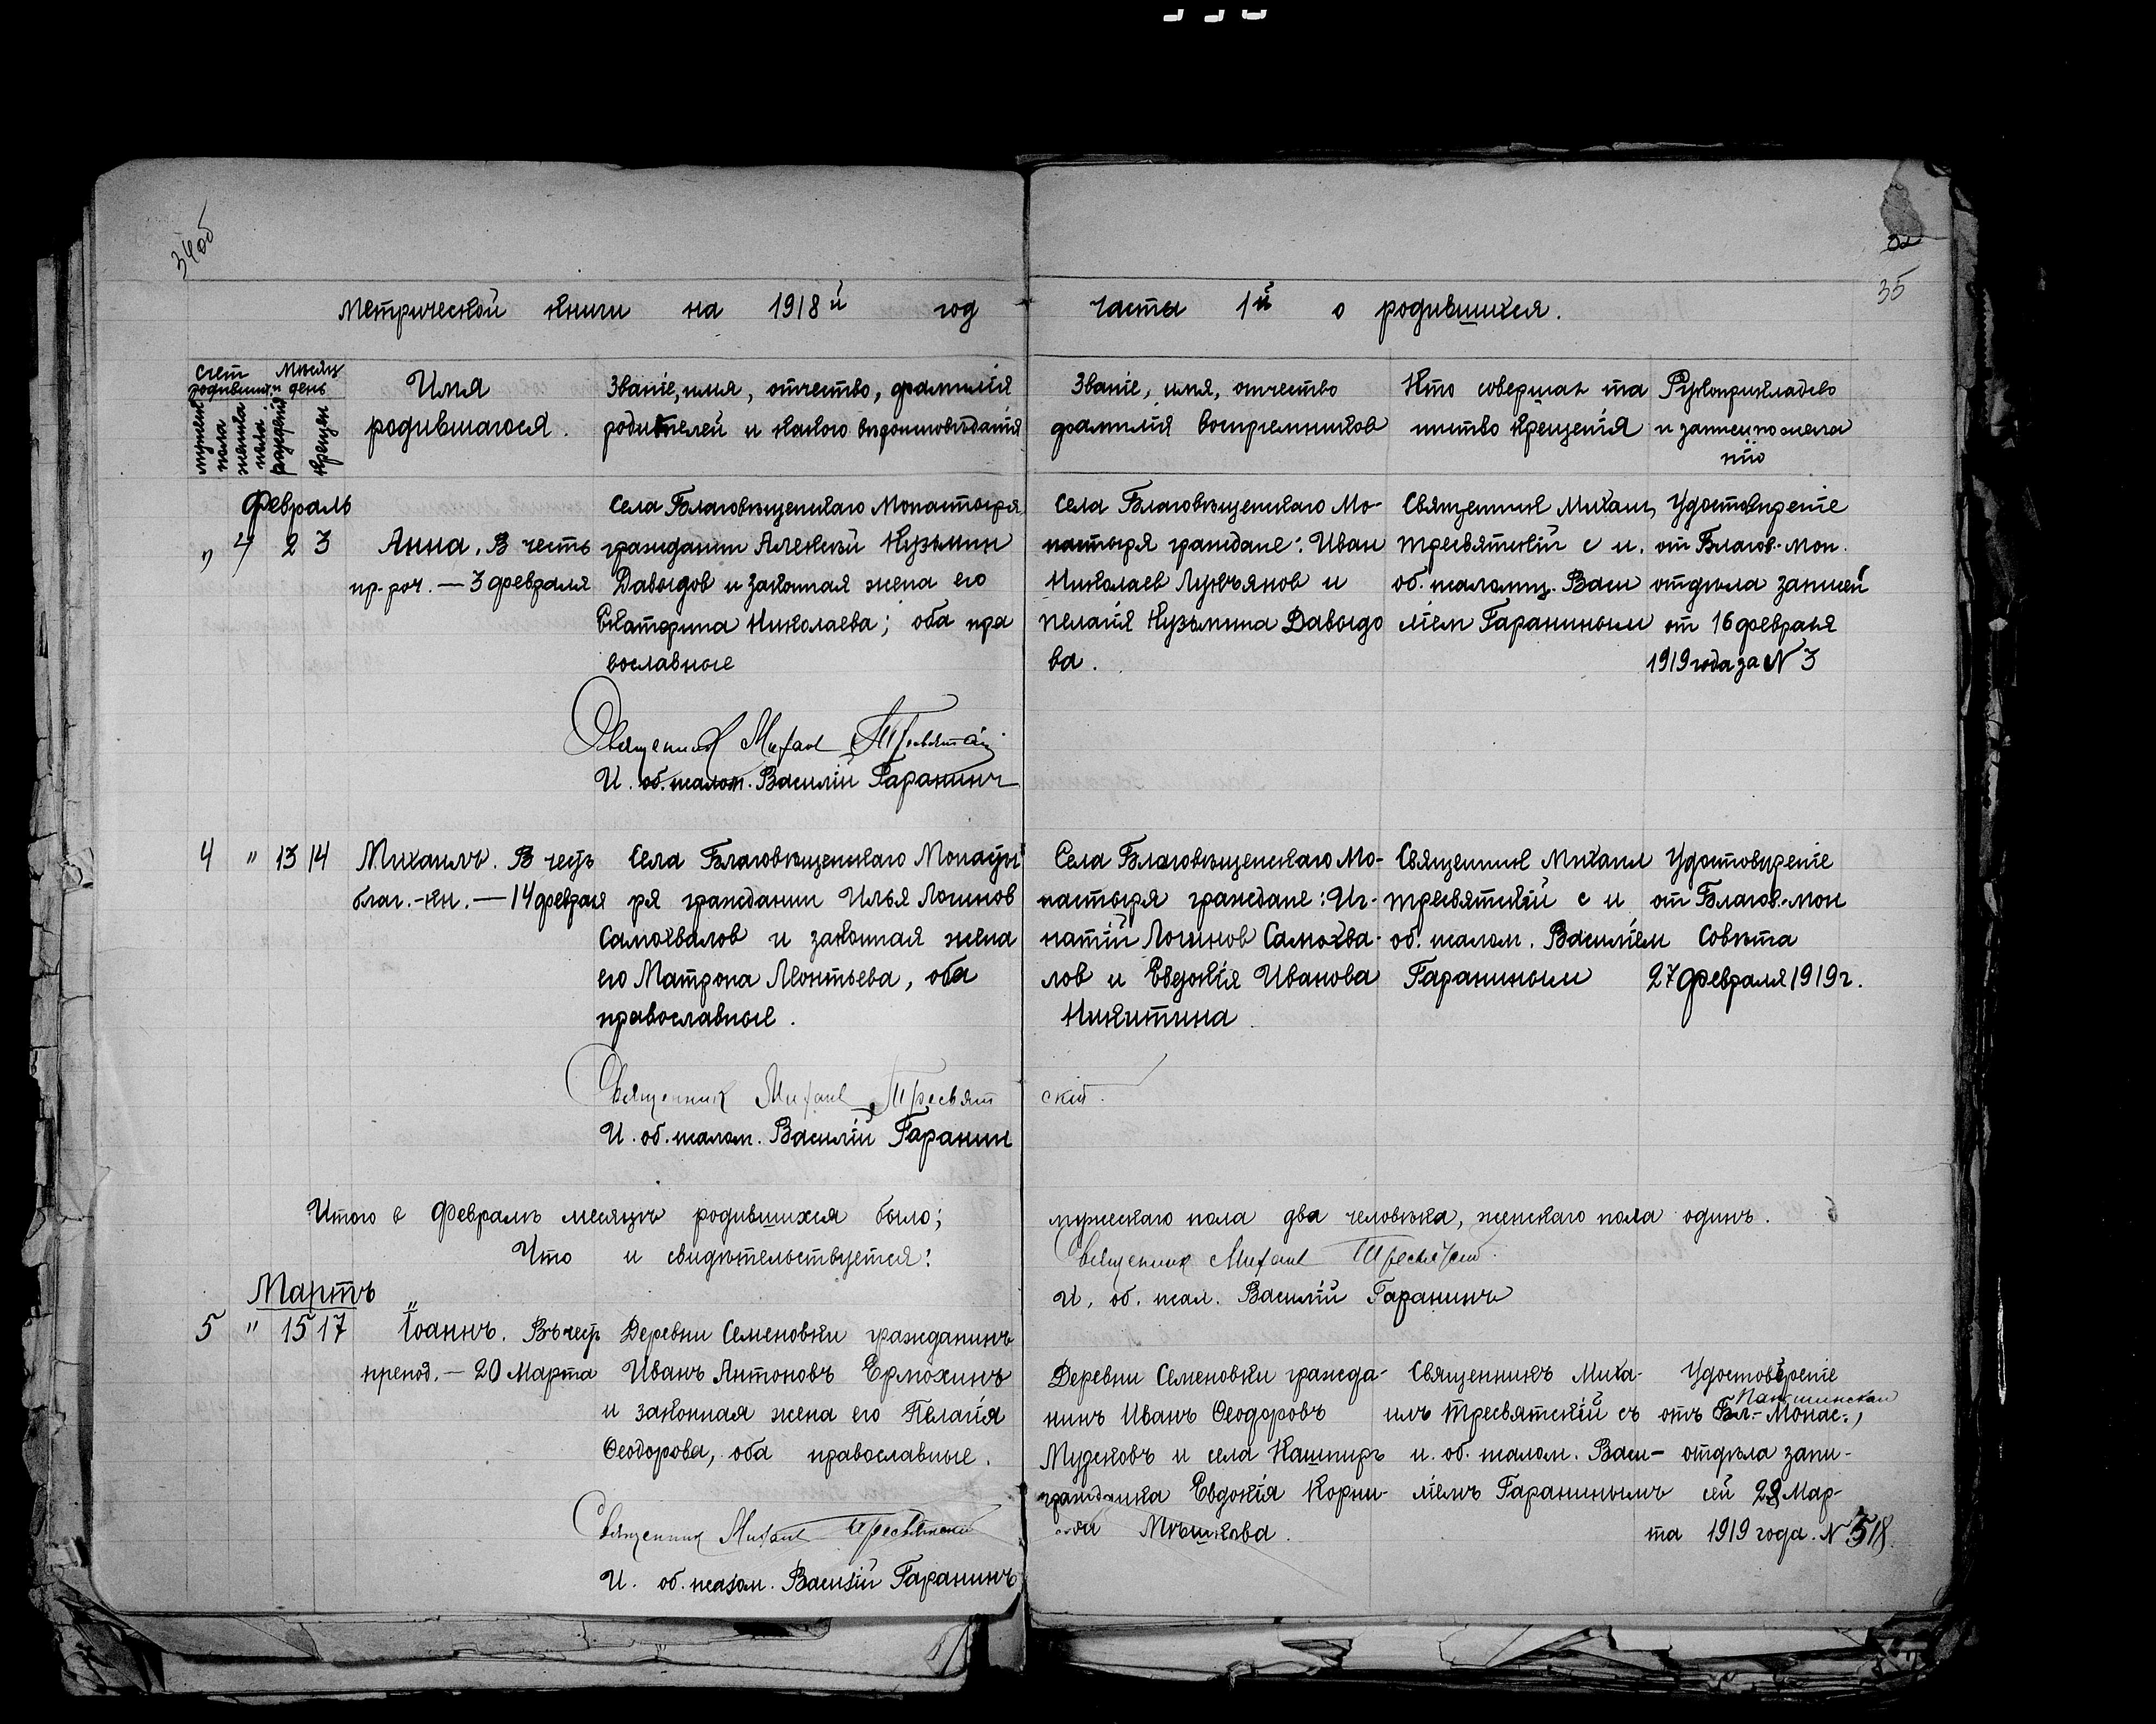 34об
35
Метрической книги на 1918й год
части 1й о родившихся.
Счет родивших.
Месяц и день
мужеска пола
женска пола
рождения
крещен
Имя
родившагося.
Званіе, имя, отчество, фамилія
родителей и какого вѣроисповѣданія
Званіе, имя, отчество
фамилія воспріемников
Кто совершал та
инство крещенія
Рукоприкладство
и записи по жела
нію
Февраль
" 4 2 3
Анна. В честь
пр. роч. — 3 февраля
Села Благовѣщенскаго Монастыря
гражданин Алексѣй Кузьмин
Давыдов и законная жена его
Екатерина Николаева; оба пра
вославные
Села Благовѣщенскаго Мо-
настыря граждане: Иван
Николаев Лукьянов и
Пелагія Кузьмина Давыдо
ва.
Священник Михаил
Тресвятскій с и.
об. псаломщ. Васи
ліем Гараниным
Удостовѣреніе
от Благов.-Мон.
отдѣла записей
от 16 февраля
1919 года за N 3
Священник Михаил Тресвятскій
И. об. псалом. Василій Гаранинъ
4 " 13 14
Михаилъ. В честь
благ.-кн. — 14 февраля
Села Благовѣщенскаго Монасты
ря гражданин Илья Логинов
Самохвалов и законная жена
его Матрона Леонтьева, оба
православные.
Села Благовѣщенскаго Мо-
настыря граждане: Иг-
натій Логинов Самохва-
лов и Евдокія Иванова
Никитина.
Священник Михаил
Тресвятскій с и
об. псалом. Василіем
Гараниным
Удостовѣреніе
от Благов.-Мон
Совѣта
27 февраля 1919 г.
Священник Михаил Тресвят
скій.
И. об. псалом. Василій Гаранин
Итого в Февралѣ месяцѣ родившихся было;
мужескаго пола два человѣка, женскаго пола одинъ.
Что и свидѣтельствуется:
Священник Михаил Тресвятскій
И. об. псал. Василій Гаранинъ
Мартъ
5 " 15 17
Іоаннъ. Въ честь
препод. — 20 Марта
Деревни Семеновки гражданинъ
Иванъ Антоновъ Ермохинъ
и законная жена его Пелагія
Ѳеодорова, оба православные.
Деревни Семеновки гражда-
нинъ Иванъ Ѳеодоровъ
и села Кашпиръ
гражданка Евдокія Корни-
Священникъ Миха-
илъ Тресвятскій съ
и. об. псалом. Васи-
ліемъ Гаранинымъ
Удостовѣреніе
отъ Бл.-Монас.,
отдѣла запи-
сей 28 Мар-
та 1919 года. N 518.
Священник Михаил Тресвятскій
И. об. псалом. Василій Гаранинъ